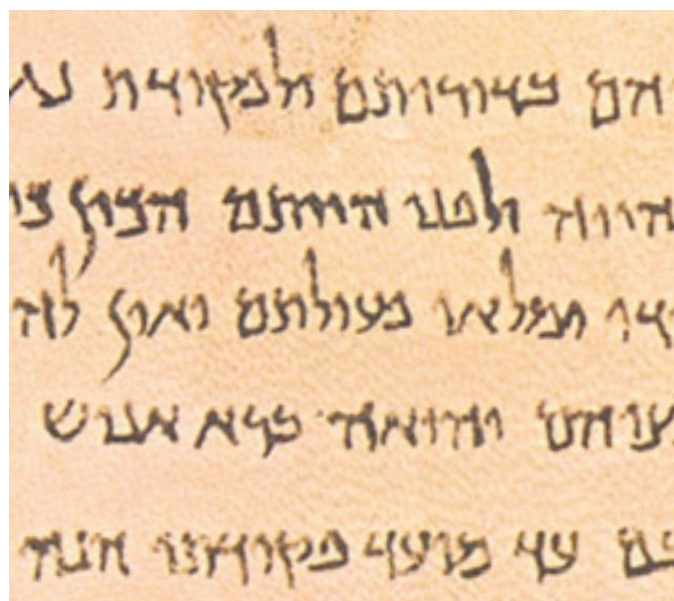 הם בדורותם ולפקודת נג
הייה ולפני היותם הכין כו
דו ימלאו פעולתם ואין לה
ציהם והואה ברא אנוש
בם עד מועד פקודתו הנה